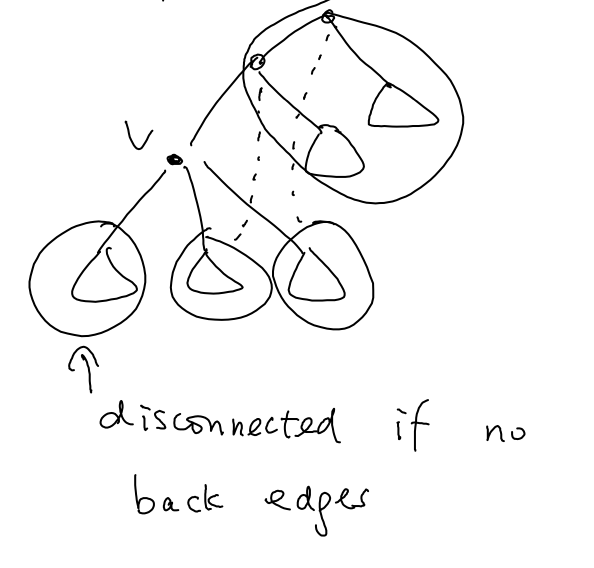 V
disconnected if no
back edges